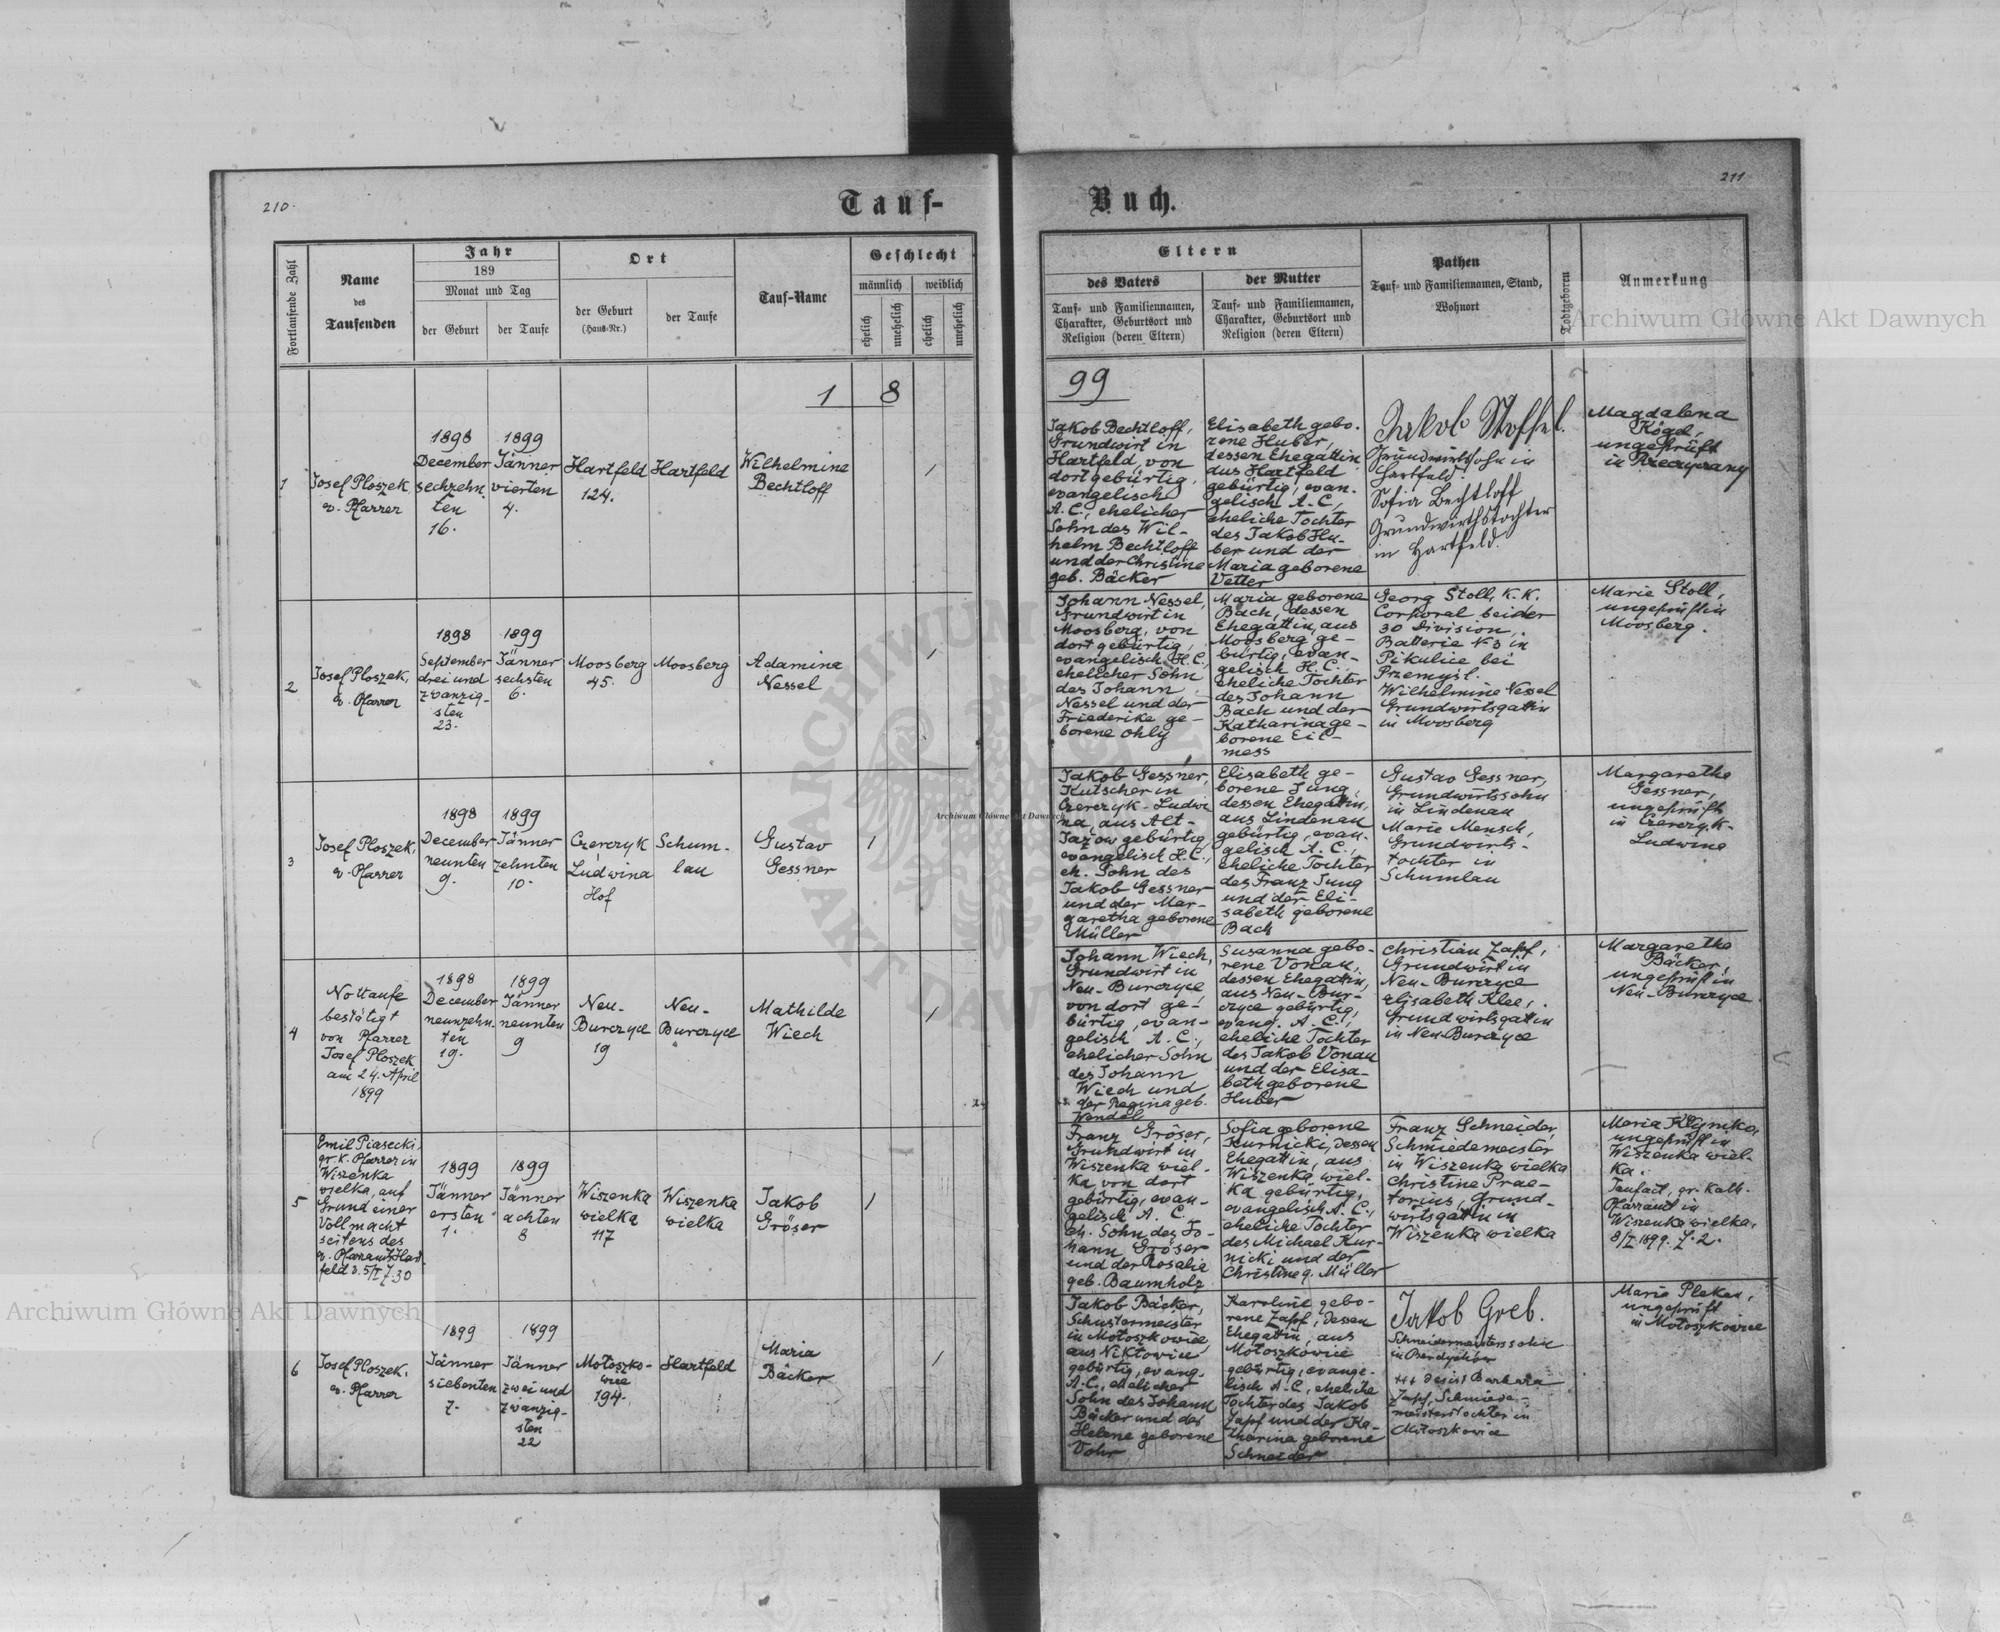 210.
Tauf-
Fortlaufende Zahl
Name
des
Taufenden
Jahr
189
Monat und Tag
der Geburt
der Taufe
Ort
der Geburt
(Haus-Nr.)
der Taufe
Tauf-Name
Geschlecht
männlich
weiblich
ehelich
unehelich
ehelich
unehelich
1 8
1
Josef Ploszek,
ev. Pfarrer
1898
December
sechzehn-
ten
16.
1899
Jänner
vierten
4.
Hartfeld
124.
Hartfeld
Wilhelmine
Bechtloff
1
2
Josef Ploszek,
ev. Pfarrer
1898
September
drei und
zwanzig-
sten
23.
1899
Jänner
sechsten
6.
Moosberg
45.
Moosberg
Adamine
Nessel
1
3
Josef Ploszek,
ev. Pfarrer
1898
December
neunten
9.
1899
Jänner
zehnten
10.
Czerczyk
Ludwina
Hof
Schum-
lau
Gustav
Gessner
1
4
Nottaufe
bestätigt
von Pfarrer
Josef Ploszek
am 24. April
1899
1898
December
neunzehn-
ten
19.
1899
Jänner
neunten
9
Neu-
Burczyce
19
Neu-
Burczyce
Mathilde
Wiech
1
5
Emil Piasecki,
gr. k. Pfarrer in
Wiszenka
wielka, auf
Grund einer
Vollmacht
seitens des
ev. Pfarramts Hart-
feld d. 5/I Z 30
1899
Jänner
ersten
1.
1899
Jänner
achten
8
Wiszenka
wielka
117
Wiszenka
wielka
Jakob
Gröser
1
6
Josef Ploszek,
ev. Pfarrer
1899
Jänner
siebenten
7.
1899
Jänner
zwei und
zwanzig-
sten
22
Mołoszko-
wice
194.
Hartfeld
Maria
Bäcker
1
211
Buch.
Eltern
des Vaters
Tauf- und Familiennamen,
Charakter, Geburtsort und
Religion (deren Eltern)
der Mutter
Tauf- und Familiennamen,
Charakter, Geburtsort und
Religion (deren Eltern)
Pathen
Tauf- und Familiennamen, Stand,
Wohnort
Todtgeboren
Anmerkung
99
Jakob Bechtloff,
Grundwirt in
Hartfeld, von
dort gebürtig,
evangelisch
A. C., ehelicher
Sohn des Wil-
helm Bechtloff
und der Christine
geb. Bäcker
Elisabeth gebo-
rene Huber,
dessen Ehegattin
aus Hartfeld
gebürtig, evan-
gelisch A. C.,
eheliche Tochter
des Jakob Hu-
ber und der
Maria geborene
Vetter
Jakob Stoffel.
Grundwirtssohn in
Hartfeld.
Sofia Bechtloff
Grundwirthstochter
in Hartfeld.
Magdalena
Kögel,
ungeprüft
in
Johann Nessel,
Grundwirt in
Moosberg, von
dort gebürtig,
evangelisch H. C.,
ehelicher Sohn
des Johann
Nessel und der
Friederike ge-
borene Ohly
Maria geborene
Bach, dessen
Ehegattin, aus
Moosberg ge-
bürtig, evan-
gelisch H. C.,
eheliche Tochter
des Johann
Bach und der
Katharina ge-
borene Eil-
mess
Georg Stoll, K. K.
Corporal bei der
30 Division,
Batterie N 3 in
Pikulice bei
Przemyśl.
Wilhelmine Nessel
Grundwirtsgattin
in Moosberg
Marie Stoll,
ungeprüft in
Moosberg.
Jakob Gessner,
Kutscher in
Czerczyk-Ludwi-
na, aus Alt-
Jazow gebürtig,
evangelisch H. C.,
eh. Sohn des
Jakob Gessner
und der Mar-
garetha geborene
Müller
Elisabeth ge-
borene Jung,
dessen Ehegattin,
aus Lindenau
gebürtig, evan-
gelisch A. C.,
eheliche Tochter
des Franz Jung
und der Eli-
sabeth geborene
Bach
Gustav Gessner,
Grundwirtssohn
in Lindenau
Marie Mensch,
Grundwirts-
tochter in
Schumlau
Margarethe
Gessner,
ungeprüft
in Czerczyk-
Ludwina
Johann Wiech,
Grundwirt in
Neu-Burczyce
von dort ge-
bürtig, evan-
gelisch A. C.,
ehelicher Sohn
des Johann
Wiech und
der Regina geb.
Wendel
Susanna gebo-
rene Vonau,
dessen Ehegattin,
aus Neu-Bur-
czyce gebürtig,
evang. A. C.,
eheliche Tochter
des Jakob Vonau
und der Elisa-
beth geborene
Huber
Christian Zapf,
Grundwirt in
Neu-Burczyce
Elisabeth Klee,
Grundwirtsgattin
in Neu Burczyce
Margarethe
Bäcker,
ungeprüft in
Neu-Burczyce
Franz Gröser,
Grundwirt in
Wiszenka wiel-
ka, von dort
gebürtig, evan-
gelisch A. C.
eh. Sohn des Jo-
hann Gröser
und der Rosalie
geb. Baumholz
Sofia geborene
Kurnicki, dessen
Ehegattin, aus
Wiszenka wiel-
ka gebürtig,
evangelisch A. C.,
eheliche Tochter
des Michael Kur-
nicki und der
Christine g. Müller
Franz Schneider,
Schmiedemeister
in Wiszenka wielka
Christine Prae-
torius, Grund-
wirtsgattin in
Wiszenka wielka
Maria Klymka,
ungeprüft in
Wiszenka wiel-
ka.
Taufact, gr. kath.
Pfarramt in
Wiszenka wielka,
8/I 1899. Z. 2.
Jakob Bäcker,
Schustermeister
in Mołoszkowice,
aus Niktowice
gebürtig, evang.
A. C., ehelicher
Sohn des Johann
Bäcker und der
Helene geborene
Vohr
Karoline gebo-
rene Zapf, dessen
Ehegattin, aus
Mołoszkowice
gebürtig, evange-
lisch A. C., eheliche
Tochter des Jakob
Zapf und der Ka-
tharina geborene
Schneider
Jakob Greb.
Schneidermeisterssohn
in Berdychów
+++ de ist Barbara
Zapf, Schmiede-
meisterstochter in
Mołoszkowice
Marie Plekan,
ungeprüft
in Mołoszkowice
Archiwum Główne Akt Dawnych
Archiwum Główne Akt Dawnych
Archiwum Główne Akt Dawnych